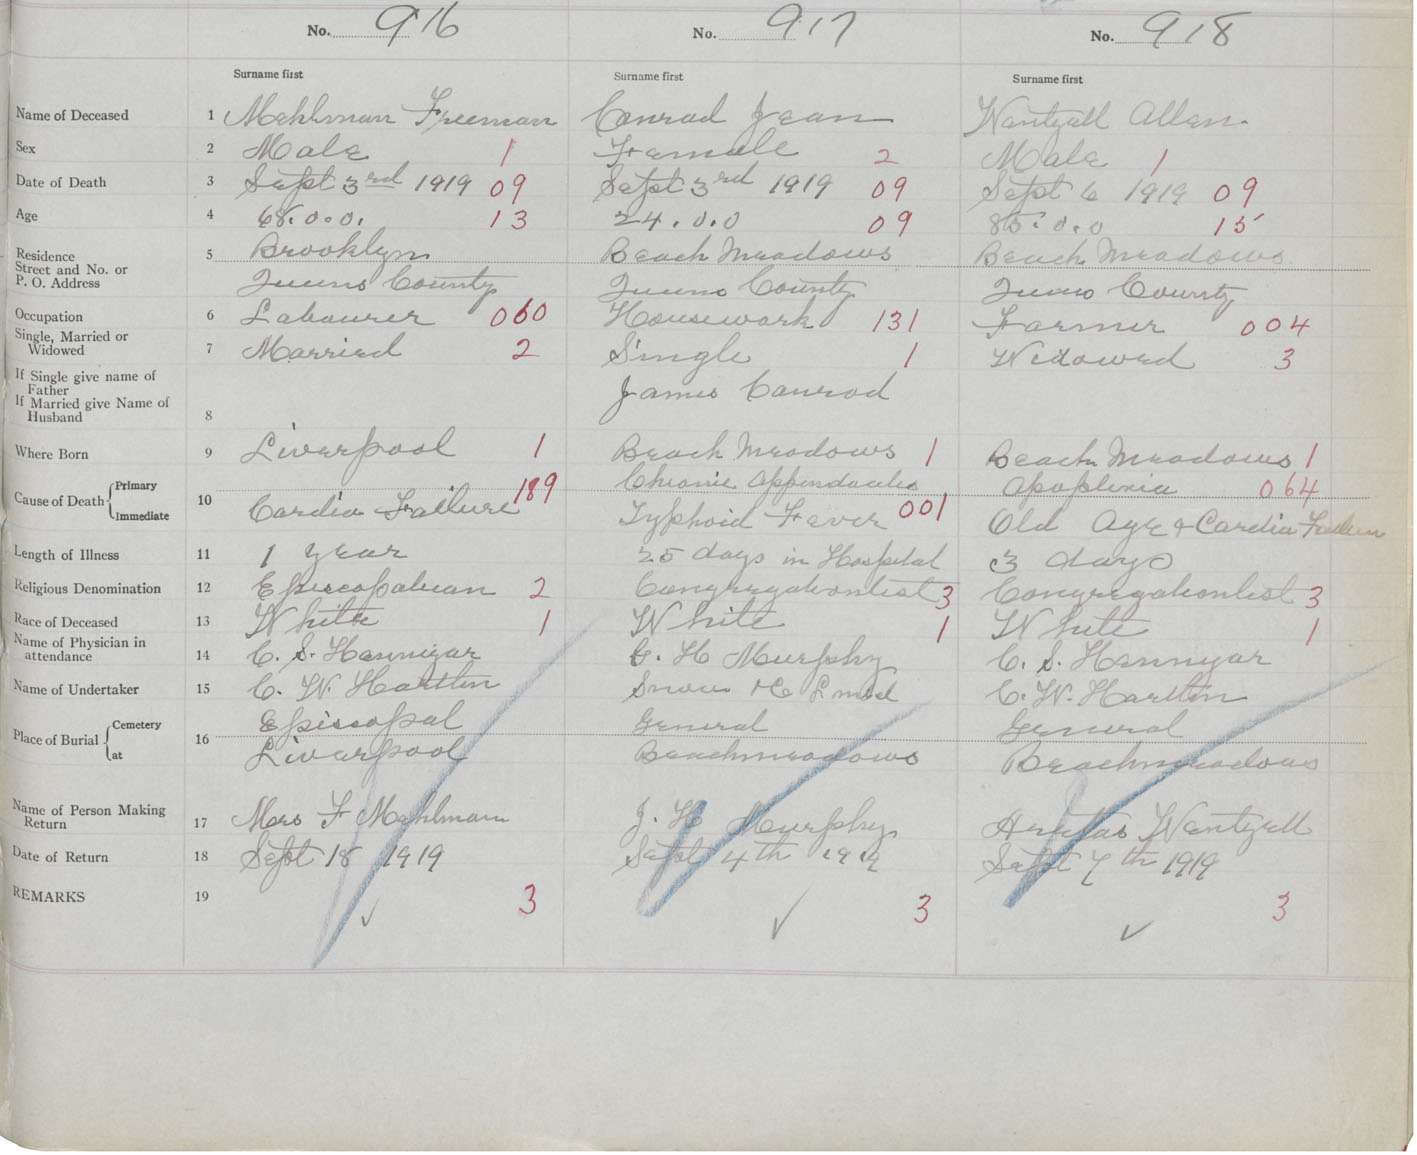 No. 916 No. 917 No. 918
Surname first Surname first Surname first
Name of Deceased 1 Mehlman Freeman Conrad Jean Wentzell Allen
Sex 2 Male 1 Female 2 Male 1
Date of Death 3 Sept 3rd 1919 09 Sept 3rd 1919 09 Sept 6 1919 09
Age 4 68.0.0. 13 24.0.0 09 85.0.0 15
Residence 5 Brooklyn Beach Meadows Beach Meadows
Street and No. or
P. O. Address Queens County Queens County Queens County
Occupation 6 Labourer 060 Housework 131 Farmer 004
Single, Married or
Widowed 7 Married 2 Single 1 Widowed 3
If Single give name of
Father James Conrod
If Married give Name of
Husband 8
Where Born 9 Liverpool 1 Beach Meadows 1 Beach Meadows 1
Cause of Death Primary 10 189 Chronic Apoplexia 064
Immediate Cardia Failure Typhoid Fever 001 Old Age + Cardia
Length of Illness 11 1 year 25 days in Hospital 3 days
Religious Denomination 12 Episcopaliean 2 Congregationlist 3 Congregationlist 3
Race of Deceased 13 White 1 White 1 White 1
Name of Physician in
attendance 14 C. S. Hennigar G. H Murphy C. S. Hennigar
Name of Undertaker 15 C. W. Hartlin Snow & Co Lmtd C. W. Hartlin
Place of Burial Cemetery 16 Episcopal General General
at Liverpool Beachmeadows Beachmeadows
Name of Person Making
Return 17 Mrs F Mehlman J. H Murphy Wentzell
Date of Return 18 Sept 18 1919 Sept 4th 1919 Sept 7th 1919
REMARKS 19 3 3 3